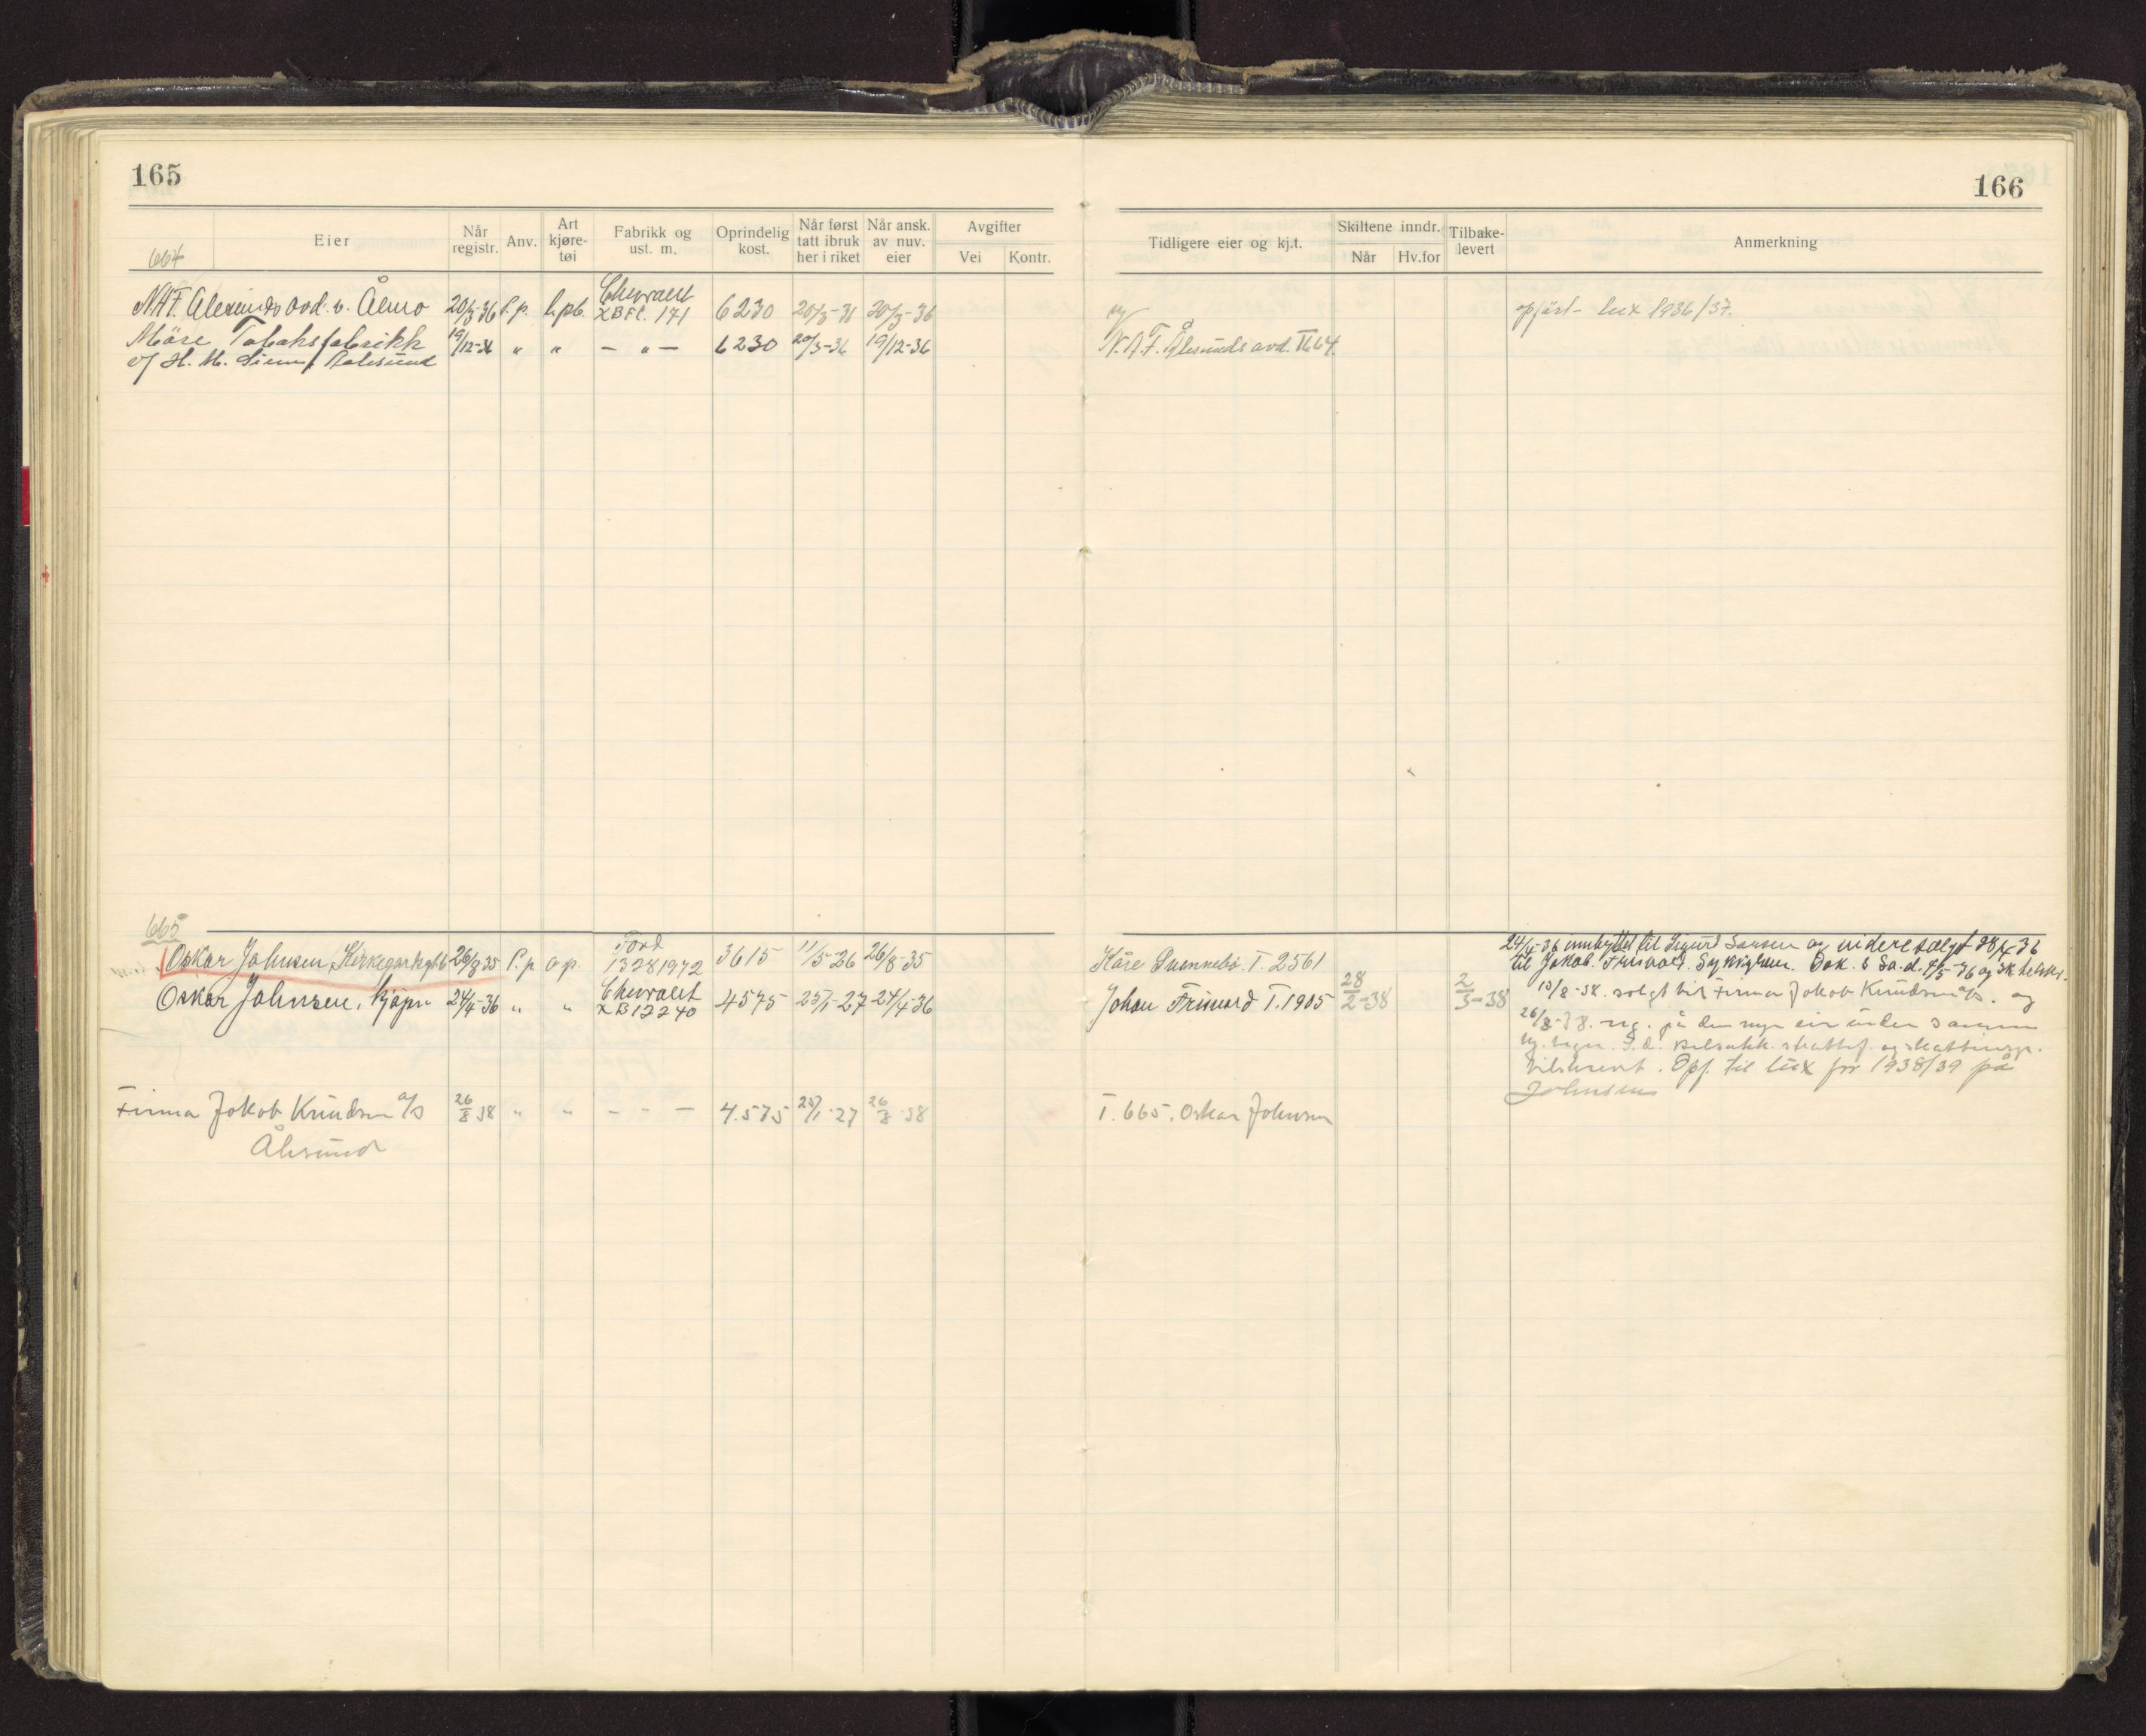 165
664
Eier
Når registr.
Anv.
Art kjøre-tøi
Fabrikk og ust. m.
Oprindelig kost.
Når først tatt ibruk her i riket
Når ansk. av nuv. eier
Avgifter
Vei
Kontr.
N.A.F. avd. v. 20/3-36 P.p. Chevrolet XBFC. 171 6230 20/3-36 20/3-36
Möre Tobaksfabrikk 19/12-36 " " - " - 6230 20/3-36 19/12-36
v/ H. M. Aalesund
665
Oskar Johnsen, 26/8 35 P.p. o.p. Ford 13281972 3615 11/5-26 26/8-35
Oskar Johnsen, kjöpm 24/4-36 " " Chevrolet XB12240 4575 25/1-27 24/4-36
Firma Jakob Knudsen a/s 26/8 38 " " - " - 4.575 25/1-27 26/8-38
Ålesund
166
Tidligere eier og kj.t.
Skiltene inndr.
Når
Hv.for
Tilbake-levert
Anmerkning
ny
opfört lux 1936/37.
N.A.F. Ålesunds avd. T 664.
Kåre T. 2561
Johan T. 1905 28/2-38 2/3-38
T. 665. Oskar Johnsen
24/4-36 innbyttet til Sigurd og videre solgt 28/4-36
til Jakob Dok. 6
13/8-38. solgt til Firma Jakob Knudsen a/s. og
26/8-38. reg. på den nye eier under samme
Opf. til lux for 1938/39 på
Johnsen